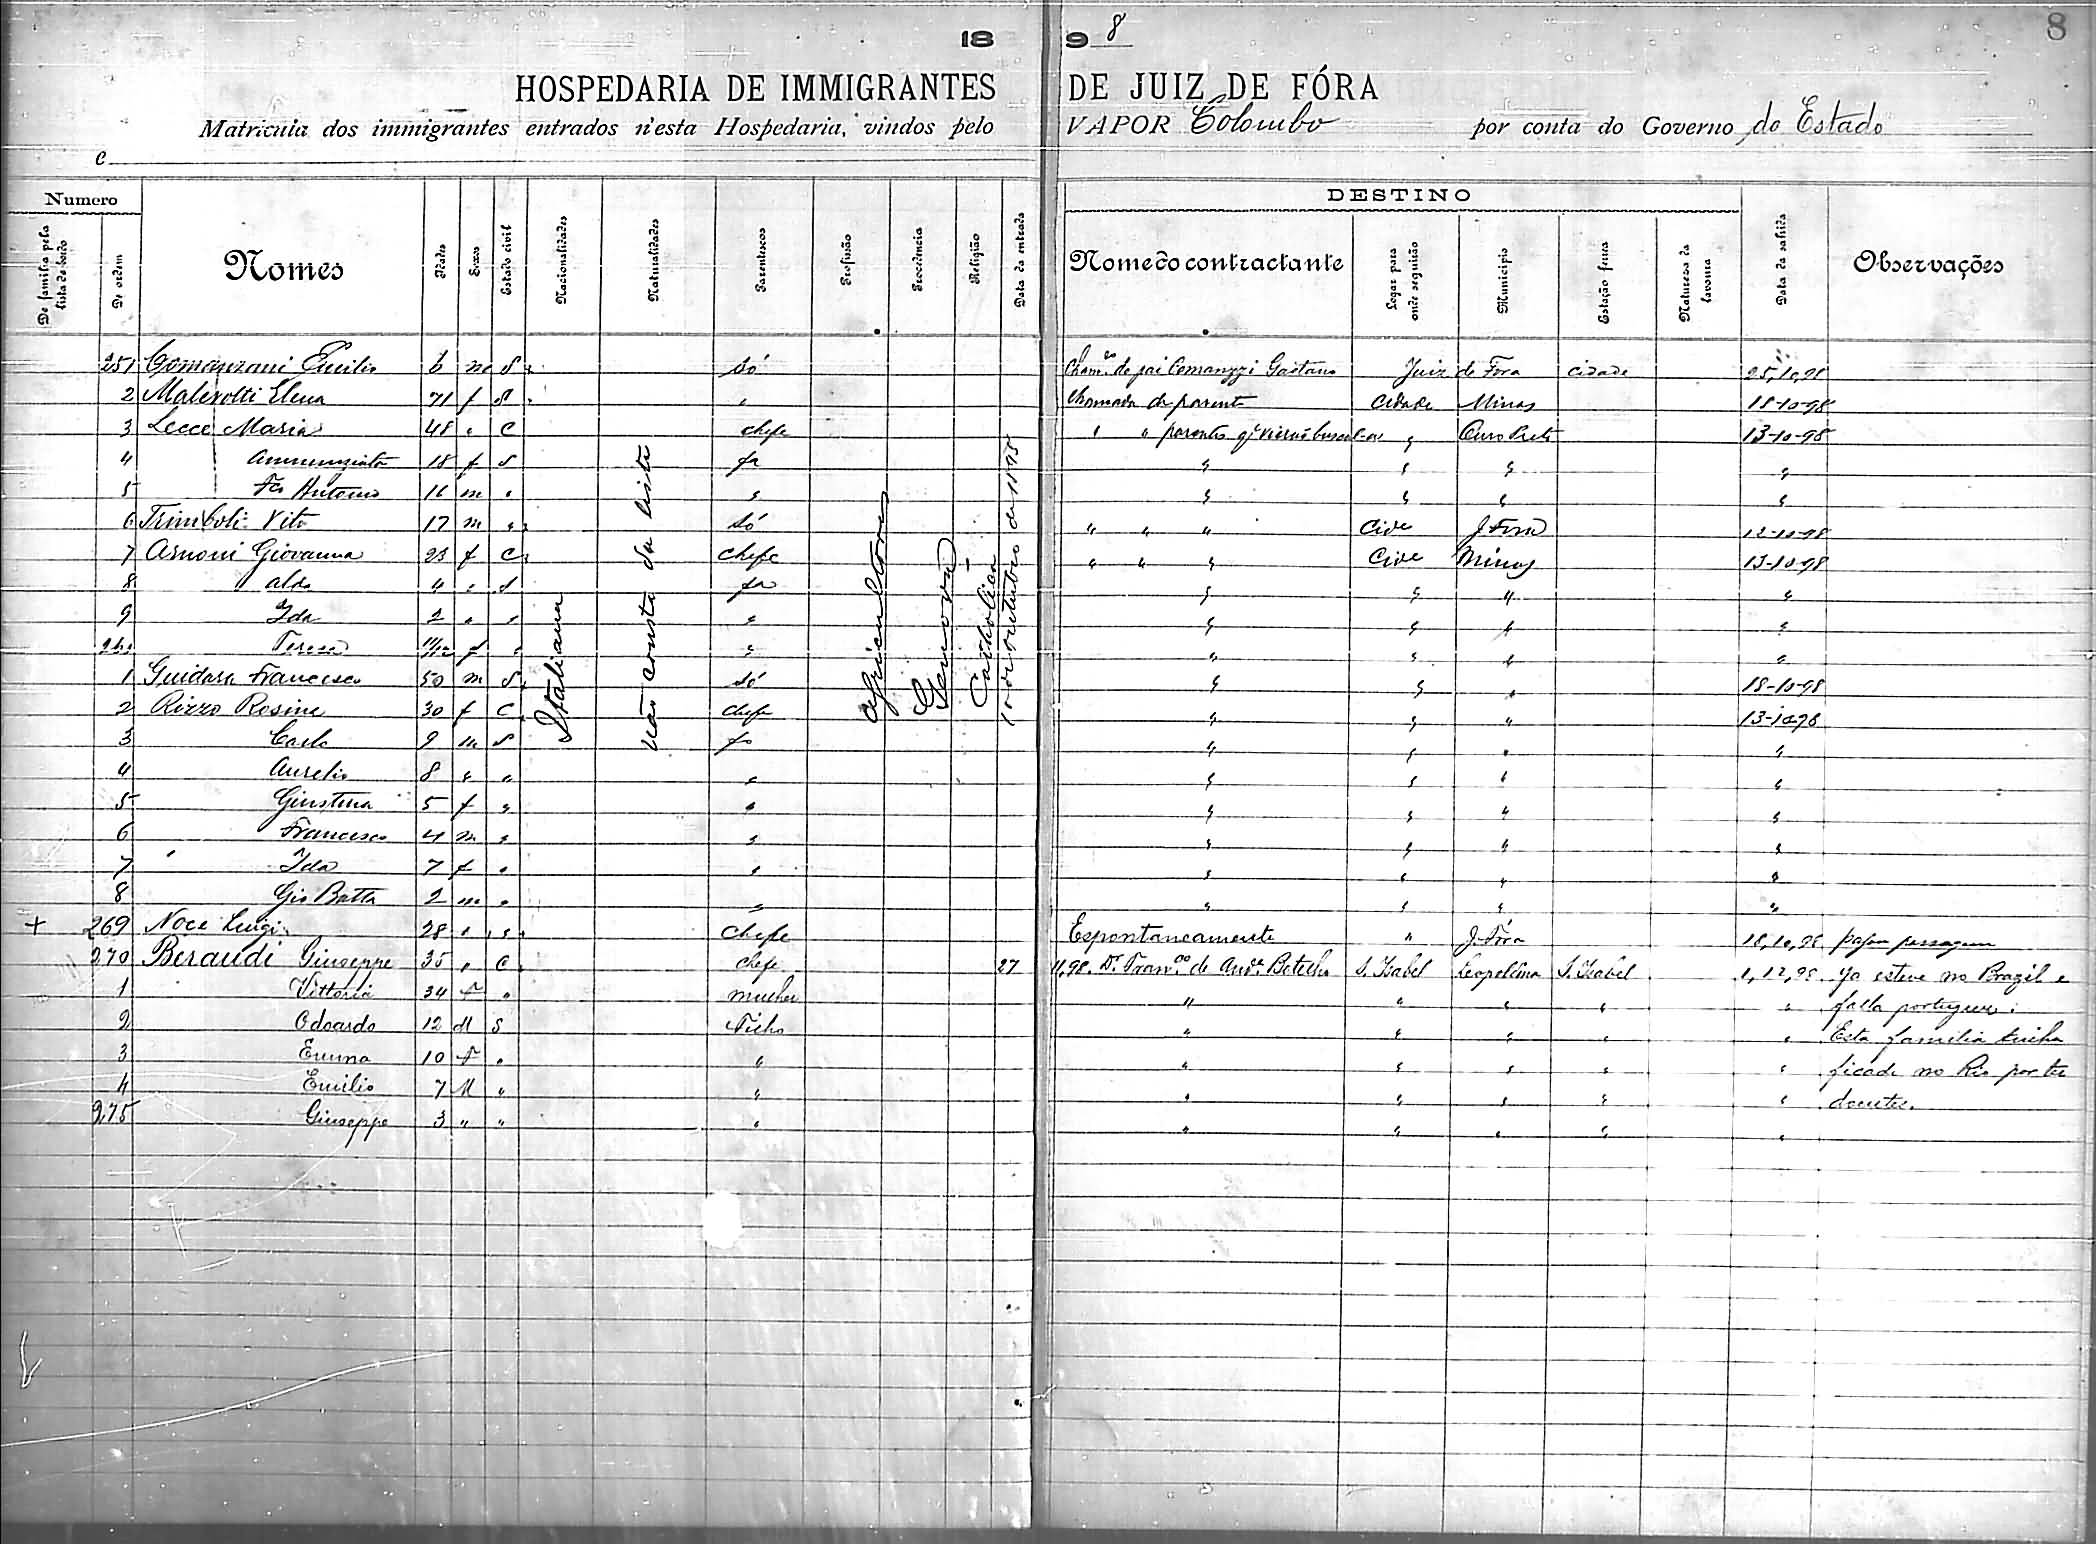 8
18 9 8
HOSPEDARIA DE IMMIGRANTES DE JUIZ DE FÓRA
Matricula dos immigrantes entrados n'esta Hospedaria, vindos pelo VAPOR Colombo por conta do Governo do Estado
e
Numero DESTINO
De familia pela lista de bordo De ordem Nomes Idades Sexos Estado civil Nacionalidades Naturalidades Parentescos Profissão Procedencia Religião Data da entrada Nome do contractante Logar para onde seguirão Municipio Estação ferrea Natureza da lavoura Data da sahida Observações
Italiana
não consta da lista
Agricultores
Genova
Catholica
10 de outubro de 1898
251 6 m S só de pai Gaetano Juiz de Fora cidade 25,10,98
2 Malerotti Elena 71 f " Chamada de parente Cidade Minas 18-10-98
3 Lecce Maria 48 " C chefe " " parentes Ouro Preto 13-10-98
4 Annunziata 18 f S fa " " " "
5 Antonio 16 m " " " " " "
6 Trimboli Vito 17 m " só " " " Cide J. Fora 12-10-98
7 Arnoni Giovanna 23 f C chefe " " " Cide Minas 13-10-98
8 Aldo 4 " S fa " " " "
9 Ida 2 " " " " " " "
260 Teresa 11/12 f " " " " " "
1 Guidara Francesco 50 m S só " " " 18-10-98
2 Rizzo Rosina 30 f C chefe " " " 13-10-98
3 Carlo 9 m S fo " " " "
4 Aurelio 8 " " " " " " "
5 Giustina 5 f " " " " " "
6 Francesco 4 m " " " " " "
7 Ida 7 f " " " " " "
8 Gio Batta 2 m " " " " " "
+ 269 Noce Luigi 28 " s chefe Espontaneamente " J. Fóra 18,10,98 passagem
270 Beraudi Giuseppe 35 " C chefe 27 11,98. Dr. Franco de Andre Botelho S. Izabel Leopoldina S. Izabel 1,12,98 Ja esteve no Brazil e
1 Vittoria 34 f " mulher " " " " " falla portuguez:
2 Odoardo 12 M S Filho " " " " " Esta familia tinha
3 Emma 10 f " " " " " " " ficado no Rio por ter
4 Emilio 7 M " " " " " " " doentes.
275 Giuseppe 3 " " " " " " " "